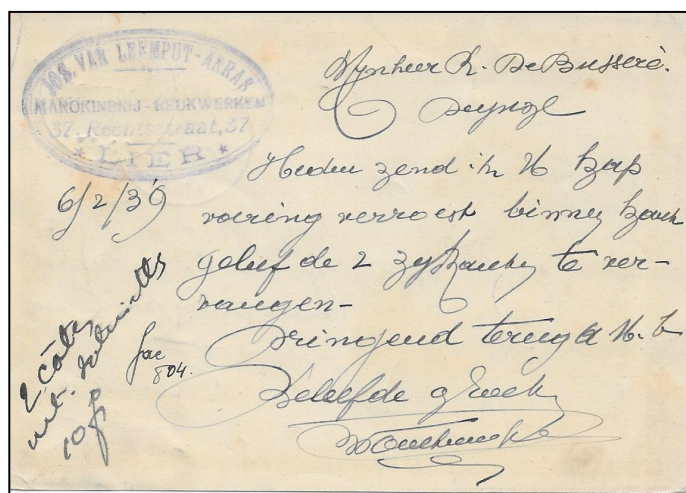 JOS. VAN LEEMPUT-ARRAS
MAROKINERIJ-REUKWERKEN
37, Rechtestraat, 37
* LIER *
Mynheer R. De Busseré.
Deynze
6/2/39
Heden zend ik U
voering verroest binnen
gelief de 2 te ver-
vangen-
dringend terug a U. b
fac
804.
Beleefde groeten
2 côtés
int.
10 fr